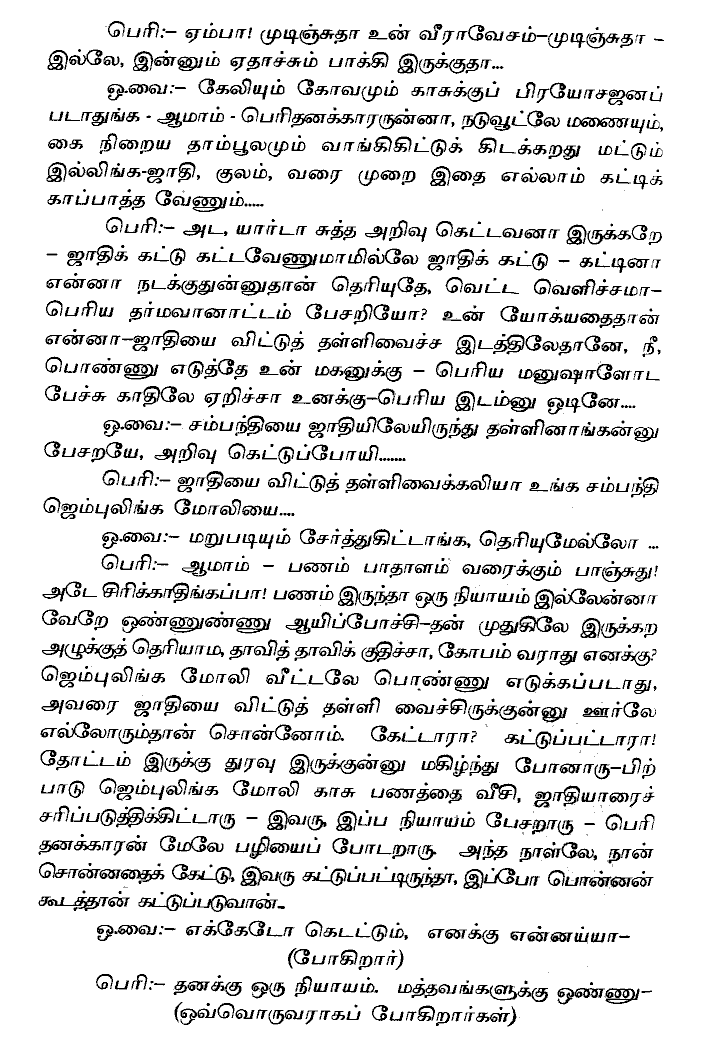 பெரி:– ஏம்பா! முடிஞ்சுதா உன் வீராவேசம்–முடிஞ்சுதா –
இல்லே, இன்னும் ஏதாச்சும் பாக்கி இருக்குதா...
ஒ.வை:– கேலியும் கோவமும் காசுக்குப் பிரயோசஜனப்
படாதுங்க - ஆமாம் - பெரிதனக்காரருன்னா, நடுவூட்லே மணையும்,
கை நிறைய தாம்பூலமும் வாங்கிகிட்டுக் கிடக்கறது மட்டும்
இல்லிங்க-ஜாதி, குலம், வரை முறை இதை எல்லாம் கட்டிக்
காப்பாத்த வேணும்.....
பெரி:– அட, யார்டா சுத்த அறிவு கெட்டவனா இருக்கறே
– ஜாதிக் கட்டு கட்டவேணுமாமில்லே ஜாதிக் கட்டு – கட்டினா
என்னா நடக்குதுன்னுதான் தெரியுதே, வெட்ட வெளிச்சமா–
பெரிய தர்மவானாட்டம் பேசறியோ? உன் யோக்யதைதான்
என்னா–ஜாதியை விட்டுத் தள்ளிவைச்ச இடத்திலேதானே, நீ,
பொண்ணு எடுத்தே உன் மகனுக்கு – பெரிய மனுஷாளோட
பேச்சு காதிலே ஏறிச்சா உனக்கு–பெரிய இடம்னு ஒடினே....
ஒ.வை:– சம்பந்தியை ஜாதியிலேயிருந்து தள்ளினாங்கன்னு
பேசறயே, அறிவு கெட்டுப்போயி.......
பெரி:– ஜாதியை விட்டுத் தள்ளிவைக்கலியா உங்க சம்பந்தி
ஜெம்புலிங்க மோலியை....
ஒ.வை:– மறுபடியும் சேர்த்துகிட்டாங்க, தெரியுமேல்லோ ...
பெரி:– ஆமாம் – பணம் பாதாளம் வரைக்கும் பாஞ்சுது!
அடே சிரிக்காதிங்கப்பா! பணம் இருந்தா ஒரு நியாயம் இல்லேன்னா
வேறே ஒண்ணுண்ணு ஆயிப்போச்சி–தன் முதுகிலே இருக்கற
அழுக்குத் தெரியாம, தாவித் தாவிக் குதிச்சா, கோபம் வராது எனக்கு?
ஜெம்புலிங்க மோலி வீட்டலே பொண்ணு எடுக்கப்படாது,
அவரை ஜாதியை விட்டுத் தள்ளி வைச்சிருக்குன்னு ஊர்லே
எல்லோரும்தான் சொன்னோம். கேட்டாரா? கட்டுப்பட்டாரா!
தோட்டம் இருக்கு துரவு இருக்குன்னு மகிழ்ந்து போனாரு–பிற்
பாடு ஜெம்புலிங்க மோலி காசு பணத்தை வீசி, ஜாதியாரைச்
சரிப்படுத்திக்கிட்டாரு – இவரு, இப்ப நியாயம் பேசறாரு – பெரி
தனக்காரன் மேலே பழியைப் போடறாரு. அந்த நாள்லே, நான்
சொன்னதைக் கேட்டு, இவரு கட்டுப்பட்டிருந்தா, இப்போ பொன்னன்
கூடத்தான் கட்டுப்படுவான்..
ஒ.வை:– எக்கேடோ கெடட்டும், எனக்கு என்னய்யா–
(போகிறார்)
பெரி:– தனக்கு ஒரு நியாயம். மத்தவங்களுக்கு ஒண்ணு–
(ஒவ்வொருவராகப் போகிறார்கள்)